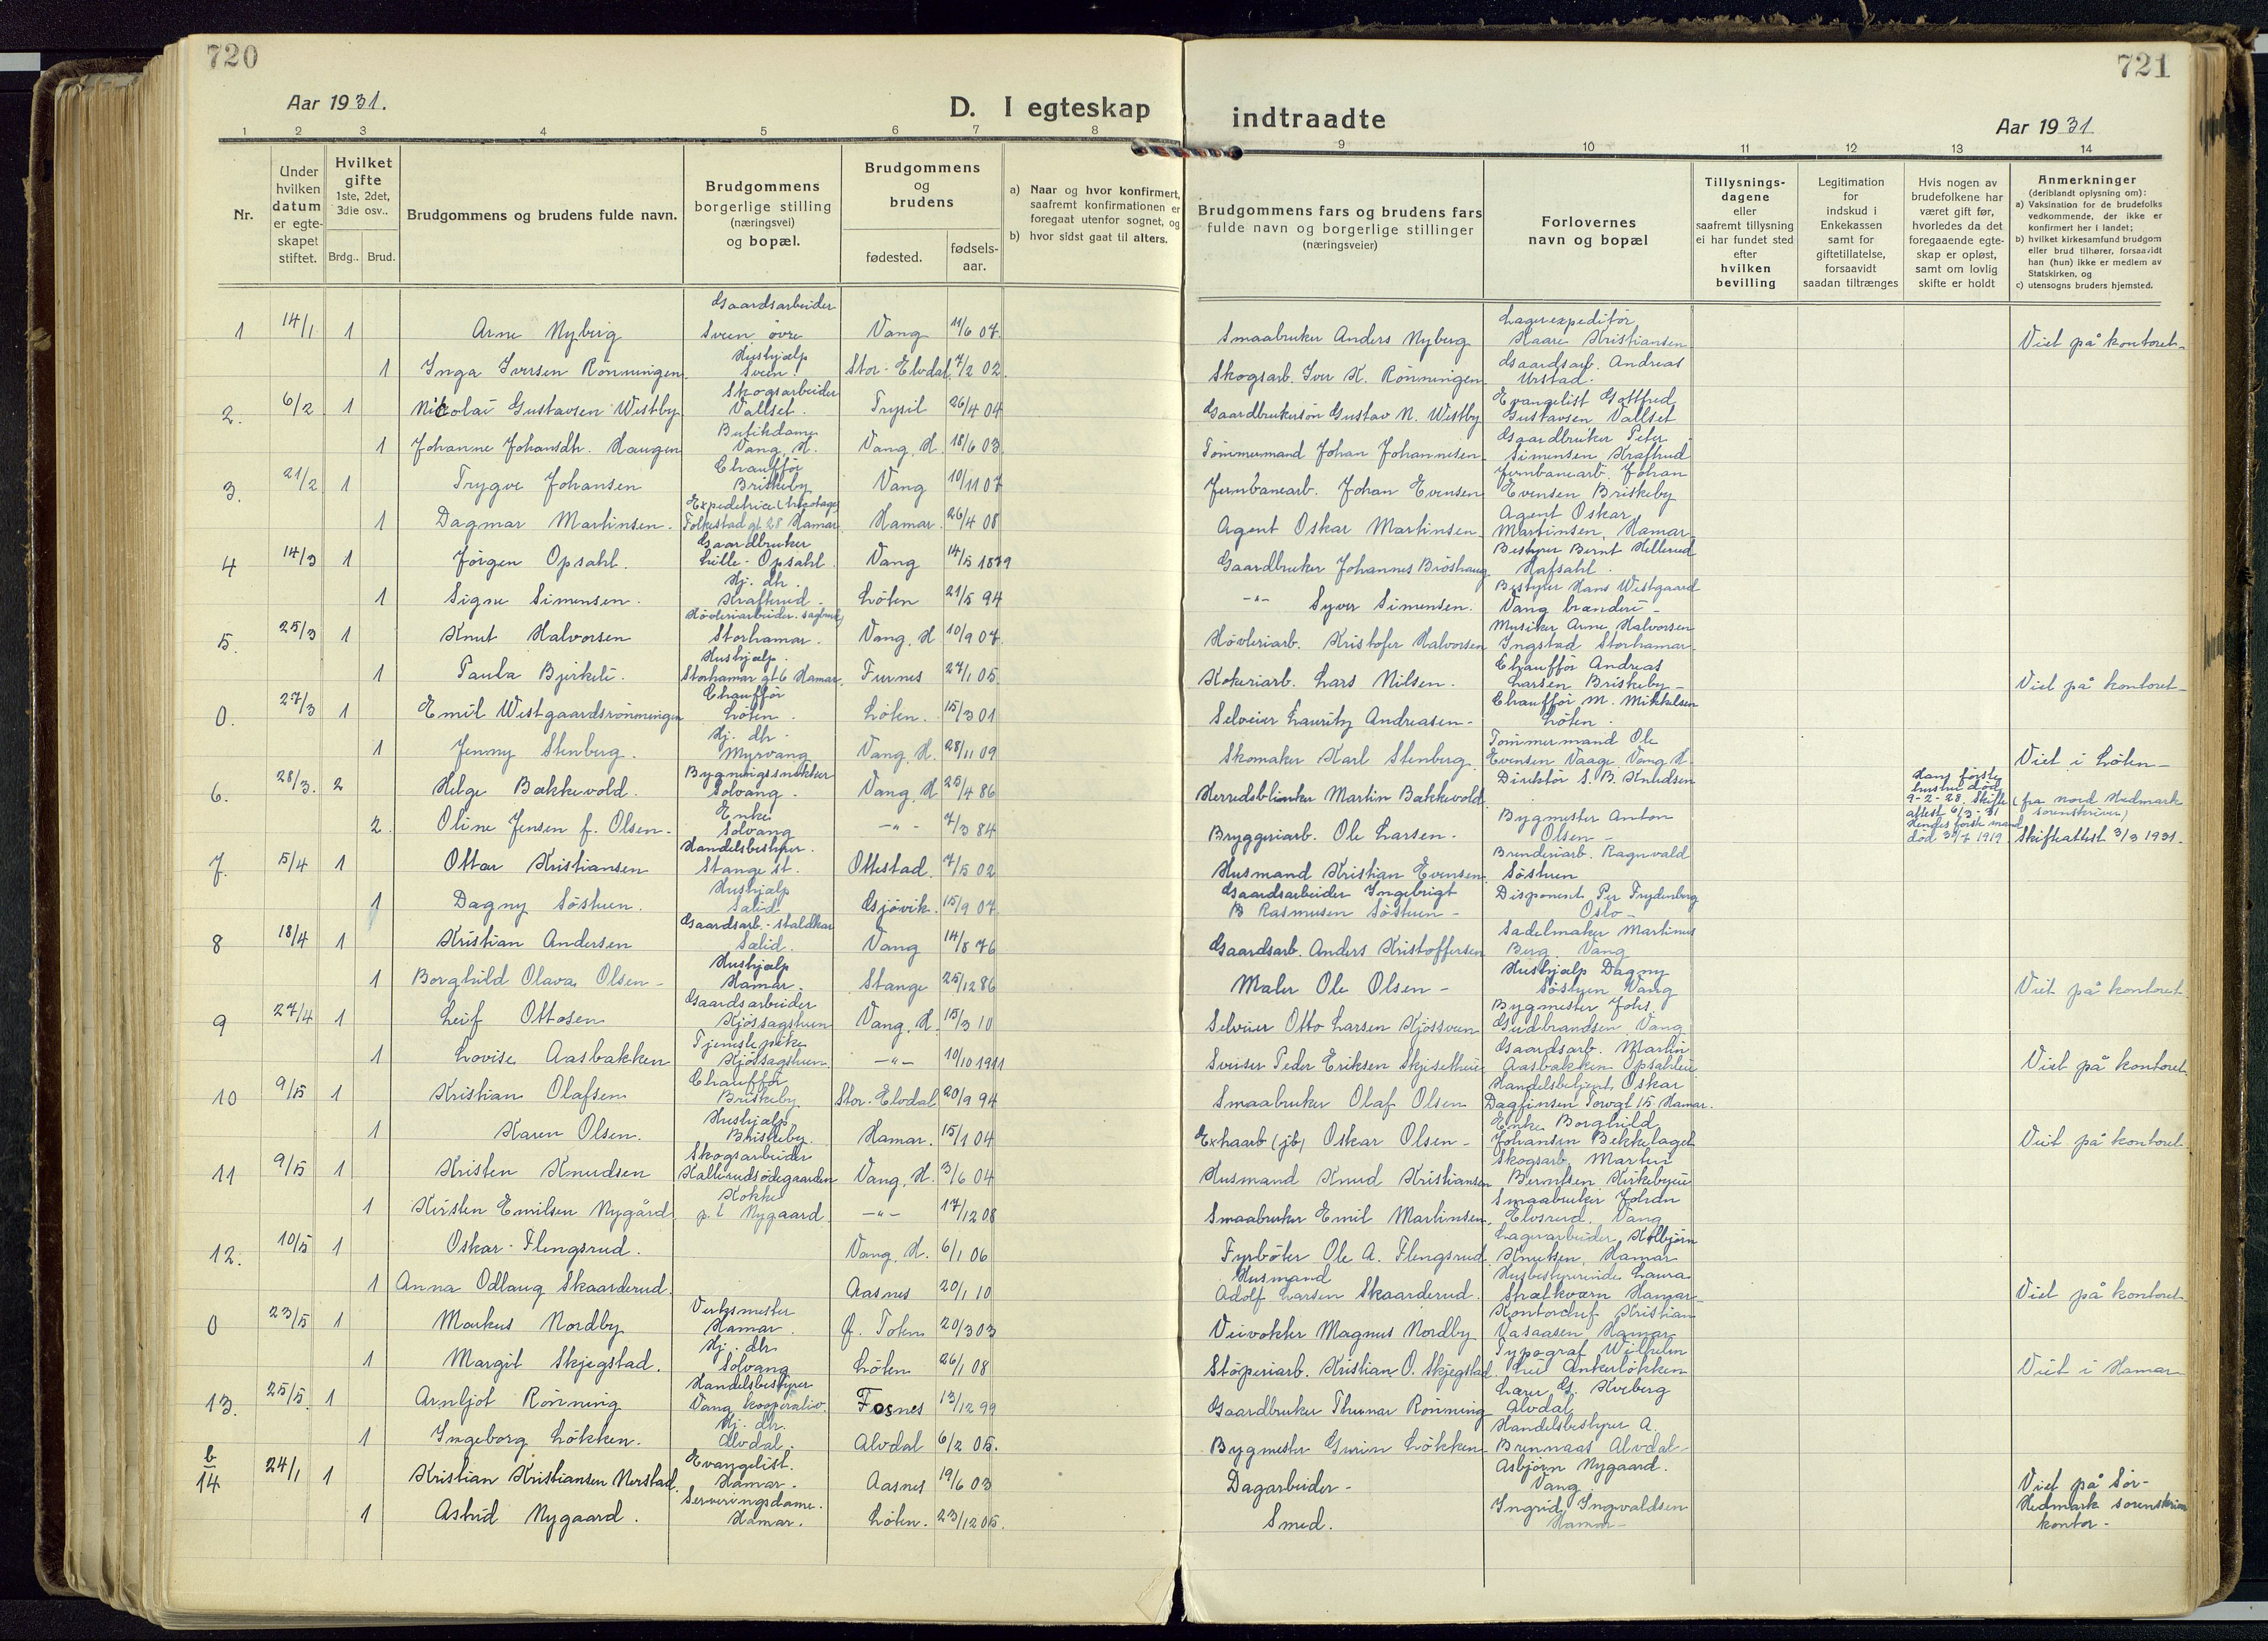 720
Aar 1931.
D. I egteskap
1 2 3 4 5 6 7 8
Nr.
Under hvilken datum er egte-skapet stiftet.
Hvilket gifte 1ste, 2det, 3die osv..
Brdg.. Brud.
Brudgommens og brudens fulde navn.
Brudgommens borgerlige stilling (næringsvei) og bopæl.
Brudgommens og brudens
fødested.
fødsels-aar.
a) Naar og hvor konfirmert, saafremt konfirmationen er foregaat utenfor sognet, og
b) hvor sidst gaat til alters.
1 14/1 1 Arne Nyberg Gaardsarbeider Sveen övre Vang 11/6 07.
1 Inga Iversen Rönningen. Hushjælp Sveen. Stor-Elvdal 7/2 02.
2. 6/2 1 Nicolai Gustavsen Westby Skogsarbeider Vallset. Trysil 26/4 04
1 Johanne Johansdtr. Haugen Butikdame Vang, H. Vang, H. 18/6 03.
3. 21/2 1 Trygve Johansen Chaufför Briskeby Vang 10/11 07
1 Dagmar Martinsen. Folkestad gt 28 Hamar Hamar. 26/4 08
4 14/3 1 Jörgen Opsahl. Gaardbruker Lille-Opsahl. Vang 14/5 1879
1 Signe Simensen. Hj. dtr. Kraftrud. Löten 21/5 94
5. 25/3 1 Knut Halvorsen Storhamar. Vang, H 10/9 07.
1 Paula Bjerkeli. Hushjælp. Storhamar gt 6 Hamar. Furnes 27/1 05.
0. 27/3 1 Emil Westgaardsrönningen Chaufför Löten. Löten. 15/3 01
1 Jenny Stenberg. Hj. dtr. Myrvang Vang, H. 28/11 09
6. 28/3. 2 Helge Bakkevold. Bygningssnekker Solvang. Vang, H 25/4 86
2. Oline Jensen f. Olsen. Enke Solvang -"- 7/3 84
7. 5/4 1 Ottar Kristiansen Handelsbestyrer. Stange st. Ottestad. 7/5 02
1 Dagny Söstuen. Hushjælp Sælid Gjövik. 15/9 07.
8 18/4 1 Kristian Andersen Gaardsarb.-Staldkar Sælid. Vang 14/8 76
1 Borghild Olava Olsen Hushjælp Hamar. Stange 25/12 86
9 27/4 1 Leif Ottosen Gaardsarbeider Vang, H. 15/3 10
1 Lovise Aasbakken Tjenestepike -"- 10/10 1911
10 9/5 1 Kristian Olafsen Chauffør Briskeby Stor-Elvdal 20/9 94
1 Karen Olsen. Hushjælp Briskeby. Hamar. 15/1 04
11 9/5 1 Kristen Knudsen Skogsarbeider Kallerudsödegaarden Vang, H. 3/6 04
1 Kirsten Emilsen Nygård. Kokke p.t. Nygaard. -"- 17/12 08
12. 10/5 1 Oskar Flengsrud. Vang, H. 6/1 06
1 Anna Odlaug Skaarderud. Aasnes 20/1 10
0 23/5 1 Markus Nordby Verksmester Hamar. Ö. Toten 20/3 03
1 Margit Skjegstad. Hj. dtr. Solvang Löten 26/1 08
13. 25/5. 1 Arnljot Rönning Handelsbestyrer Vang kooperativ. Fosnes 13/12 99
1 Ingeborg Lökken. Hj. dtr. Alvdal. Alvdal 6/2 05.
b 14 24/1 1 Kristian Kristiansen Nerstad. Evangelist. Hamar. Aasnes 19/6 03
1 Astrid Nygaard. Serveringsdame. Hamar. Löten. 23/12 05.
721
indtraadte
Aar 1931
9 10 11 12 13 14
Brudgommens fars og brudens fars fulde navn og borgerlige stillinger (næringsveier)
Forlovernes navn og bopæl
Tillysnings-dagene eller saafremt tillysning ei har fundet sted efter hvilken bevilling
Legitimation for indskud i Enkekassen samt for giftetillatelse, forsaavidt saadan tiltrænges
Hvis nogen av brudefolkene har været gift før, hvorledes da det foregaaende egte-skap er opløst, samt om lovlig skifte er holdt
Anmerkninger (deriblandt oplysning om):
a) Vaksination for de brudefolks vedkommende, der ikke er konfirmert her i landet;
b) hvilket kirkesamfund brudgom eller brud tilhører, forsaavidt han (hun) ikke er medlem av Statskirken, og
c) utensogns bruders hjemsted.
Smaabruker Anders Nyberg Lagerexpeditör Kaare Kristiansen Viet på kontoret
Skogsarb. Iver K. Rönningen Gaardsarb. Andreas Urstad.
Gaardbrukersön Gustav N. Westby Evangelist Gottfred Gustavsen Vallset
Tömmermand Johan Johannesen Gaardbruker Peter Simensen Kraftrud
Jernbanearb. Johan Evensen Jernbanearb. Johan Evensen Briskeby
Agent Oskar Martinsen Agent Oskar Martinsen, Hamar.
Gaardbruker Johannes Bröshaug Bestyrer Bernt Hellerud Hafsahl.
-"- Syver Simensen. Bestyrer Hans Westgaard Vang brænderi
Hövleriarb. Kristofer Halvorsen Musiker Arne Halvorsen Ingstad Storhamar.
Kokeriarb. Lars Nilsen. Chauffør Andreas Larsen Briskeby Viet på kontoret
Selveier Lauritz Andreasen Chauffør M. Mikkelsen Löten.
Skomaker Karl Stenberg Tømmermand Ole Evensen Vaage, Vang H. Viet i Löten
Martin Bakkevold. Direktör S. B. Knudsen Hans förste hustru död 9-2-28. Skifte attest 6/3-31 (fra nord Hedmark sorenskriver)
Bryggeriarb. Ole Larsen. Bygmester Anton Olsen Hendes förste mand død 30/7 1919 Skifteattest 3/3 1931.
Husmand Kristian Evensen. Brenneriarb. Ragnvald Söstuen
Gaardsarbeider Ingebrigt B Rasmusen Söstuen Disponent Per Frydenberg Oslo
Gaardsarb. Anders Kristoffersen Sadelmaker Martinus Berg, Vang
Maler Ole Olsen Hushjælp Dagny Söstuen Vang Viet på kontoret
Selveier Otto Larsen Kjössveen Bygmester Johs. Gudbrandsen, Vang
Sveiser Peder Eriksen Gaardsarb. Martin Aasbakken Viet på kontoret
Smaabruker Olaf Olsen Handelsbetjent Oskar Dagfinsen Torvgt 15 Hamar.
Oskar Olsen Enke Borghild Johansen Bekkelaget Viet på kontoret
Husmand Knud Kristiansen Skogsarb. Martin Berntsen Kirkebyeie
Smaabruker Emil Martinsen. Smaabruker Johan Elvsrud. Vang
Fyrböter Ole A. Flengsrud. Lagerarbeider Kolbjørn Knutsen, Hamar
Husmand Adolf Larsen Skaarderud. Husbestyrerinde Laura Strælkværn Hamar Viet på kontoret
Veivokter Magnus Nordby Kontorchef Kristian Vasaasen Hamar
Støperiarb. Kristian O. Skjegstad. Typograf Wilhelm Lie Ankerløkken Viet i Hamar
Gaardbruker Rönning Lærer G. Kveberg Alvdal
Bygmester Lökken Handelsbestyrer A. Brennaas Alvdal
Dagarbeider Asbjörn Nygaard. Vang Viet på Sör-Hedmark sorenskriver kontor
Smed. Ingrid Ingvaldsen Hamar